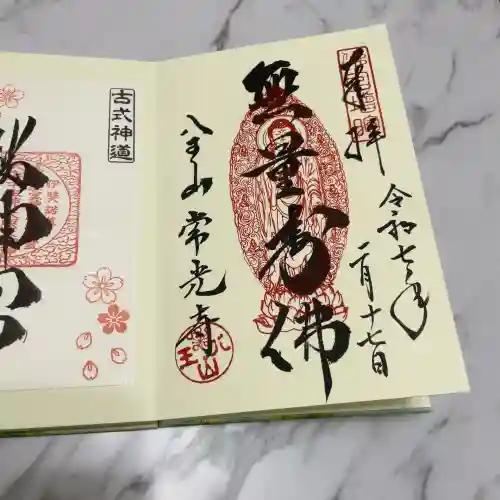 奉拝
令和七年
二月十七日
無量寿佛
八王山 常光寺
古式神道
桜神宮